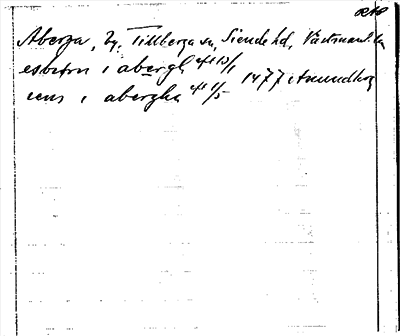 RAP
Aberga, by. Tillberga sn, Siende hd, Västmanl. l.
esbiorn i abergh eft 13/1 1477 Amundhæ
iens i abergha eft 1/5